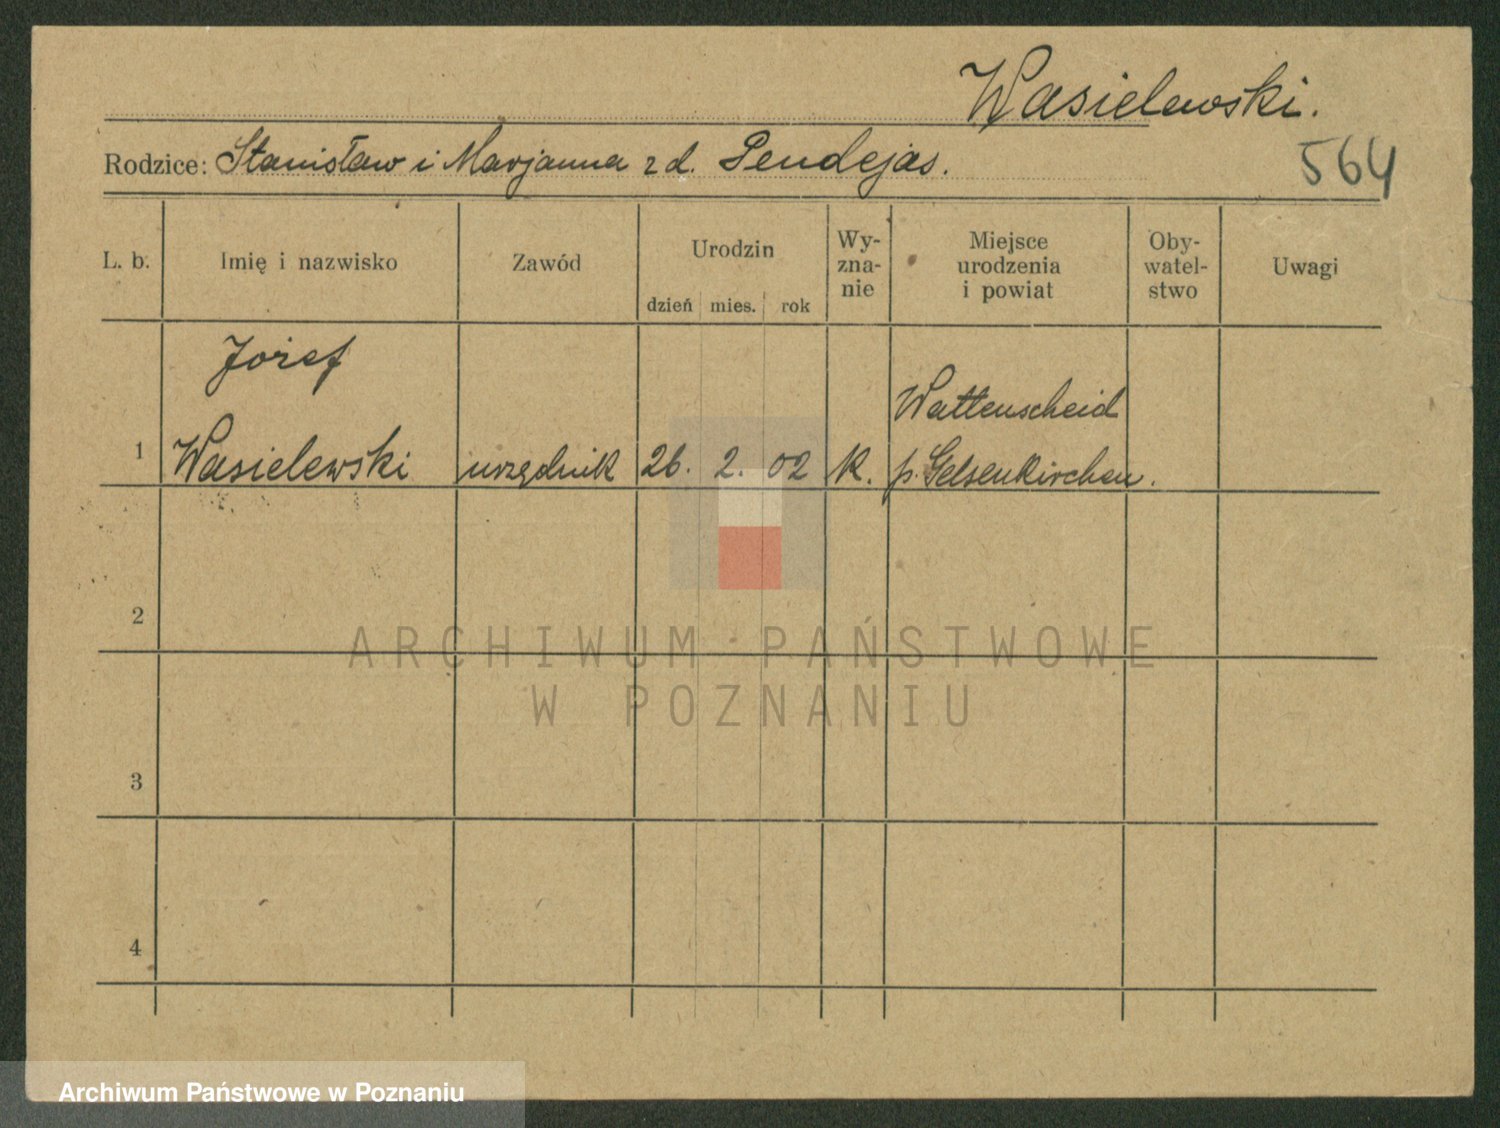 Wasielewski.
Rodzice: Stanisław i Marjanna z d. Pendejas.
564
L. b.
Imię i nazwisko
Zawód
Urodzin
dzień mies. rok
Wy-
zna-
nie
Miejsce
urodzenia
i powiat
Oby-
watel-
stwo
Uwagi
Józef
Wattenscheid
1 Wasielewski urzędnik 26. 2. 02 k. p. Gelsenkirchen.
2
ARCHIWUM PAŃSTWOWE
W POZNANIU
3
4
Archiwum Państwowe w Poznaniu